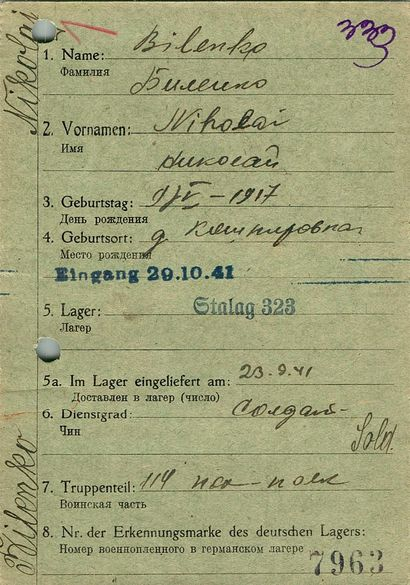 Nikolai
1. Name: Bilenko
Фамилия
Биленко
2. Vornamen: Nikolai
Имя
Николай
3. Geburtstag: 1917
День рождения
4. Geburtsort: д.
Место рождения
Eingang 29.10.41
5. Lager: Stalag 323
Лагер
5a. Im Lager eingeliefert am: 23.9.41
Доставлен в лагер (число)
6. Dienstgrad: Солдат
Чин
Sold.
7. Truppenteil: 114 полк
Воинская часть
8. Nr. der Erkennungsmarke des deutschen Lagers:
Номер военнопленного в германском лагере
7963
Bilenko